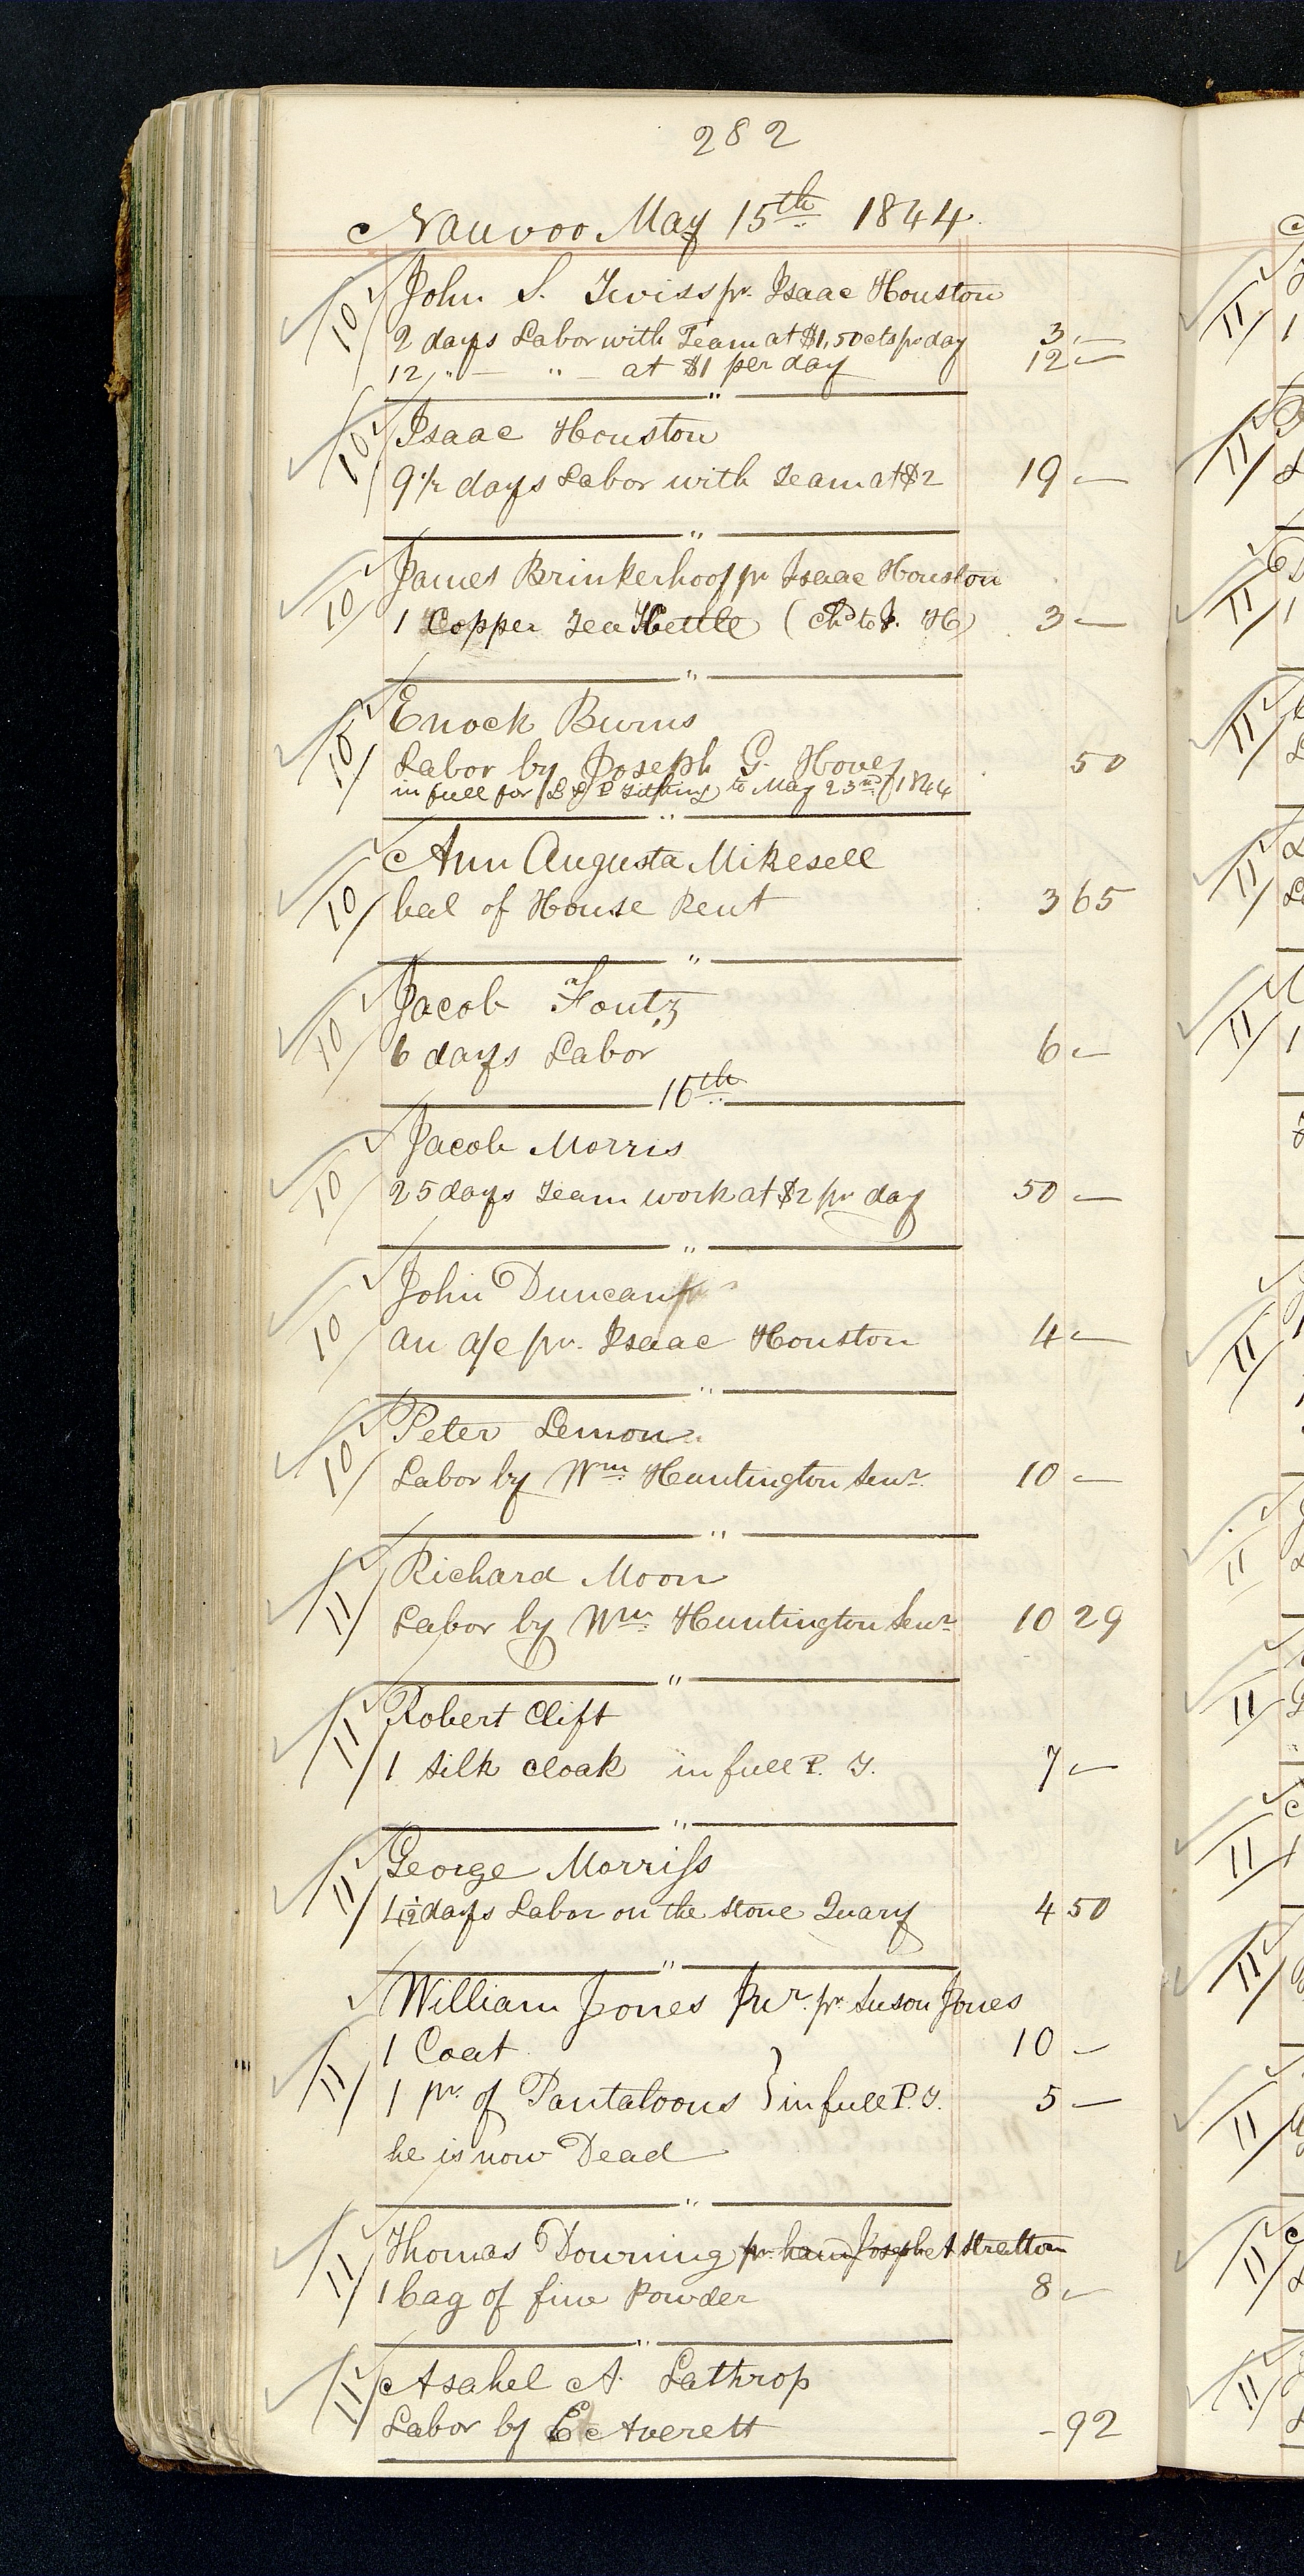 282
Nauvoo May 15th 1844.
10 John S. Twiss pr. Isaac Houston
2 days Labor with Team at $1,50 cts pr day 3 —
12 " — " — at $1 per day 12 —
"
10 Isaac Houston
9 1/2 days Labor with Team at $2 19 —
"
10 James Brinkerhoof pr Isaac Houston
1 Copper Tea Kettle (Chd to I. H) 3 —
"
10 Enock Burns
Labor by Joseph G. Hovey 50
in full for Tithing to May 23rd /1844
"
10 Ann Augusta Mikesell
bal of House Rent 3 65
"
10 Jacob Foutz
6 days Labor 6 —
16th
10 Jacob Morris
25 days Team work at $2 pr day 50 —
"
10 John Duncan
an a/c pr. Isaac Houston 4 —
"
10 Peter Lemon
Labor by Wm Huntington Senr. 10 —
"
11 Richard Moon
Labor by Wm. Huntington Senr 10 29
"
11 Robert Clift
1 Silk cloak in full P. T. 7 —
"
11 George Morriss
4 1/2 days Labor on the Stone Quary 4 50
"
William Jones Junr. pr Suson Jones
1 Coat 10 —
11 1 pr. of Pantaloons } in full P. T. 5 —
he is now Dead
"
11 Thomas Downing pr. hand Joseph A Stratton
1 bag of fine Powder 8 —
"
11 Asahel A. Lathrop
Labor by E Averett - 92